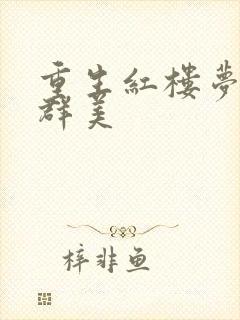 重生紅樓夢
群美
梓非鱼